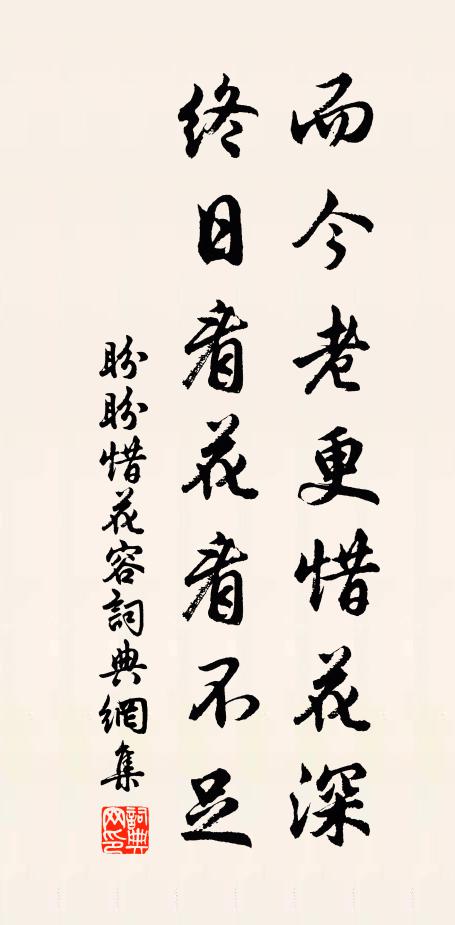 而今老更惜花深
終日看花看不足
盼盼惜花容詞典網集
詞典網印